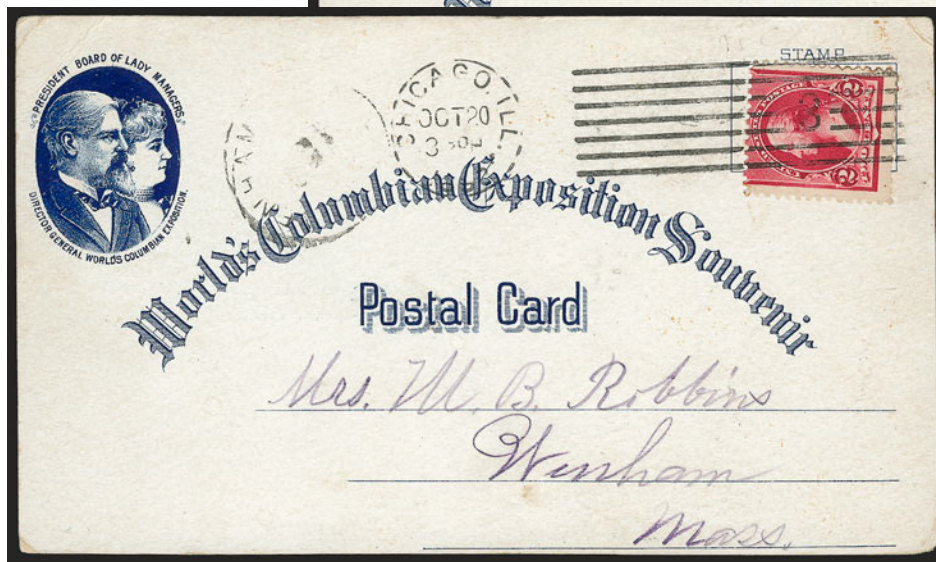 PRESIDENT BOARD OF LADY MANAGERS.
DIRECTOR GENERAL WORLD'S COLUMBIAN EXPOSITION.
CHICAGO, ILL.
OCT 20
3
STAMP
3
World's Columbian Exposition Souvenir
Postal Card
Mrs. M. B. Robbins
Wenham
Mass.